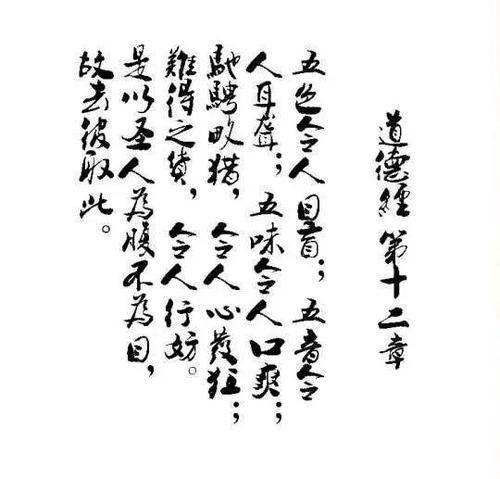 道德經第十二章
五色令人目盲；五音令
人耳聾；五味令人口爽；
馳騁畋猎，令人心發狂；
難得之货，令人行妨。
是以圣人為腹不為目，
故去彼取此。